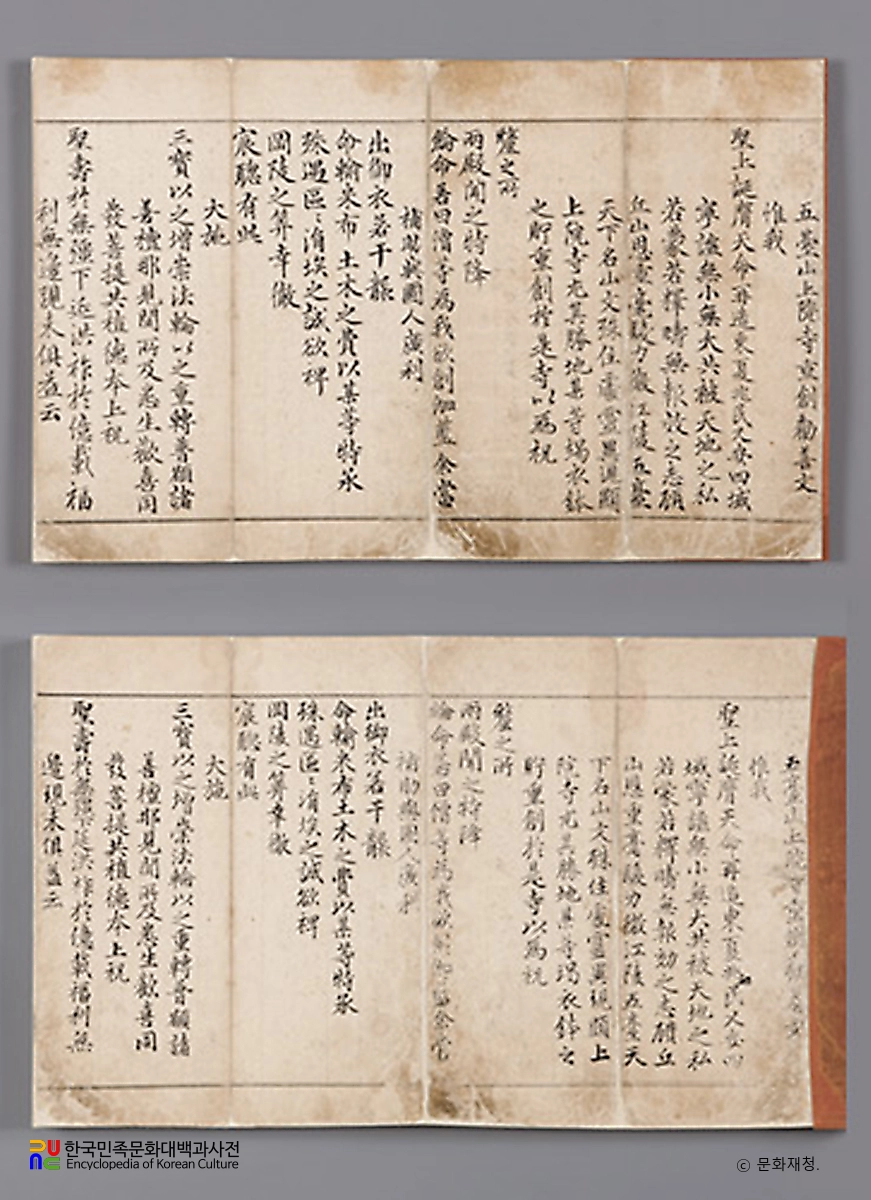 五臺山上院寺重創勸善文
惟我
聖上誕膺天命再造東夏兆民乂安四域
寧謐無小無大共被天地之私
若蒙若擇時無報效之志願
丘山恩重毫髮力微江陵五臺
天下名山文殊住處靈異現顯
上院寺尤其勝地某等竭衣鉢
之貯重創於是寺以爲祝
釐之所
兩殿聞之特降
綸命若曰僧等爲我欲創伽藍余當
補助與國人廣利
出御衣若干襲
命輸米布土木之費以某等特承
殊遇區〻涓埃之誠欲稗
岡陵之算幸徹
宸聰有此
大施
三寶以之增崇法輪以之重轉普願諸
善檀那見聞所及悉生歡喜同
發菩提共植德本上祝
聖壽於無彊下延洪祚於億載福
利無邊現未俱益云
五臺山上院寺重創勸善文
惟我
聖上誕膺天命再造東夏兆民乂安四
域寧謐無小無大共被天地之私
若蒙若擇時無報効之志願丘
山恩重毫髮力微江陵五臺天
下名山文殊住處靈異現顯上
院寺尤其勝地某等竭衣鉢之
貯重創於是寺以爲祝
釐之所
兩殿聞之特降
綸命若曰僧等爲我欲創伽藍余當
補助與國人廣利
出御衣若干襲
命輸米布土木之費以某等特承
殊遇區〻涓埃之誠欲稗
岡陵之算幸徹
宸聰有此
大施
三寶以之增崇法輪以之重轉普願諸
善檀那見聞所及悉生歡喜同
發菩提共植德本上祝
聖壽於無彊下延洪祚於億載福利無
邊現未俱益云
한국민족문화대백과사전
Encyclopedia of Korean Culture
ⓒ 문화재청.